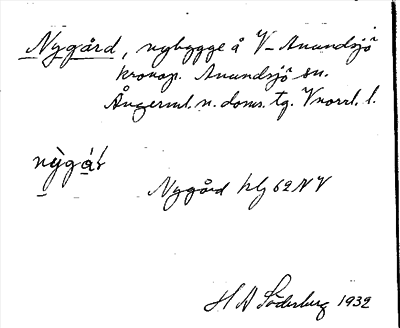 Nygård, nybygge å V-Anundsjö
kronop. Anundsjö sn.
Ångerml. n. doms. tg. Vnorrl. l.
nỳgá̱r
Nygård hlg 62 NV
H A Söderberg 1932